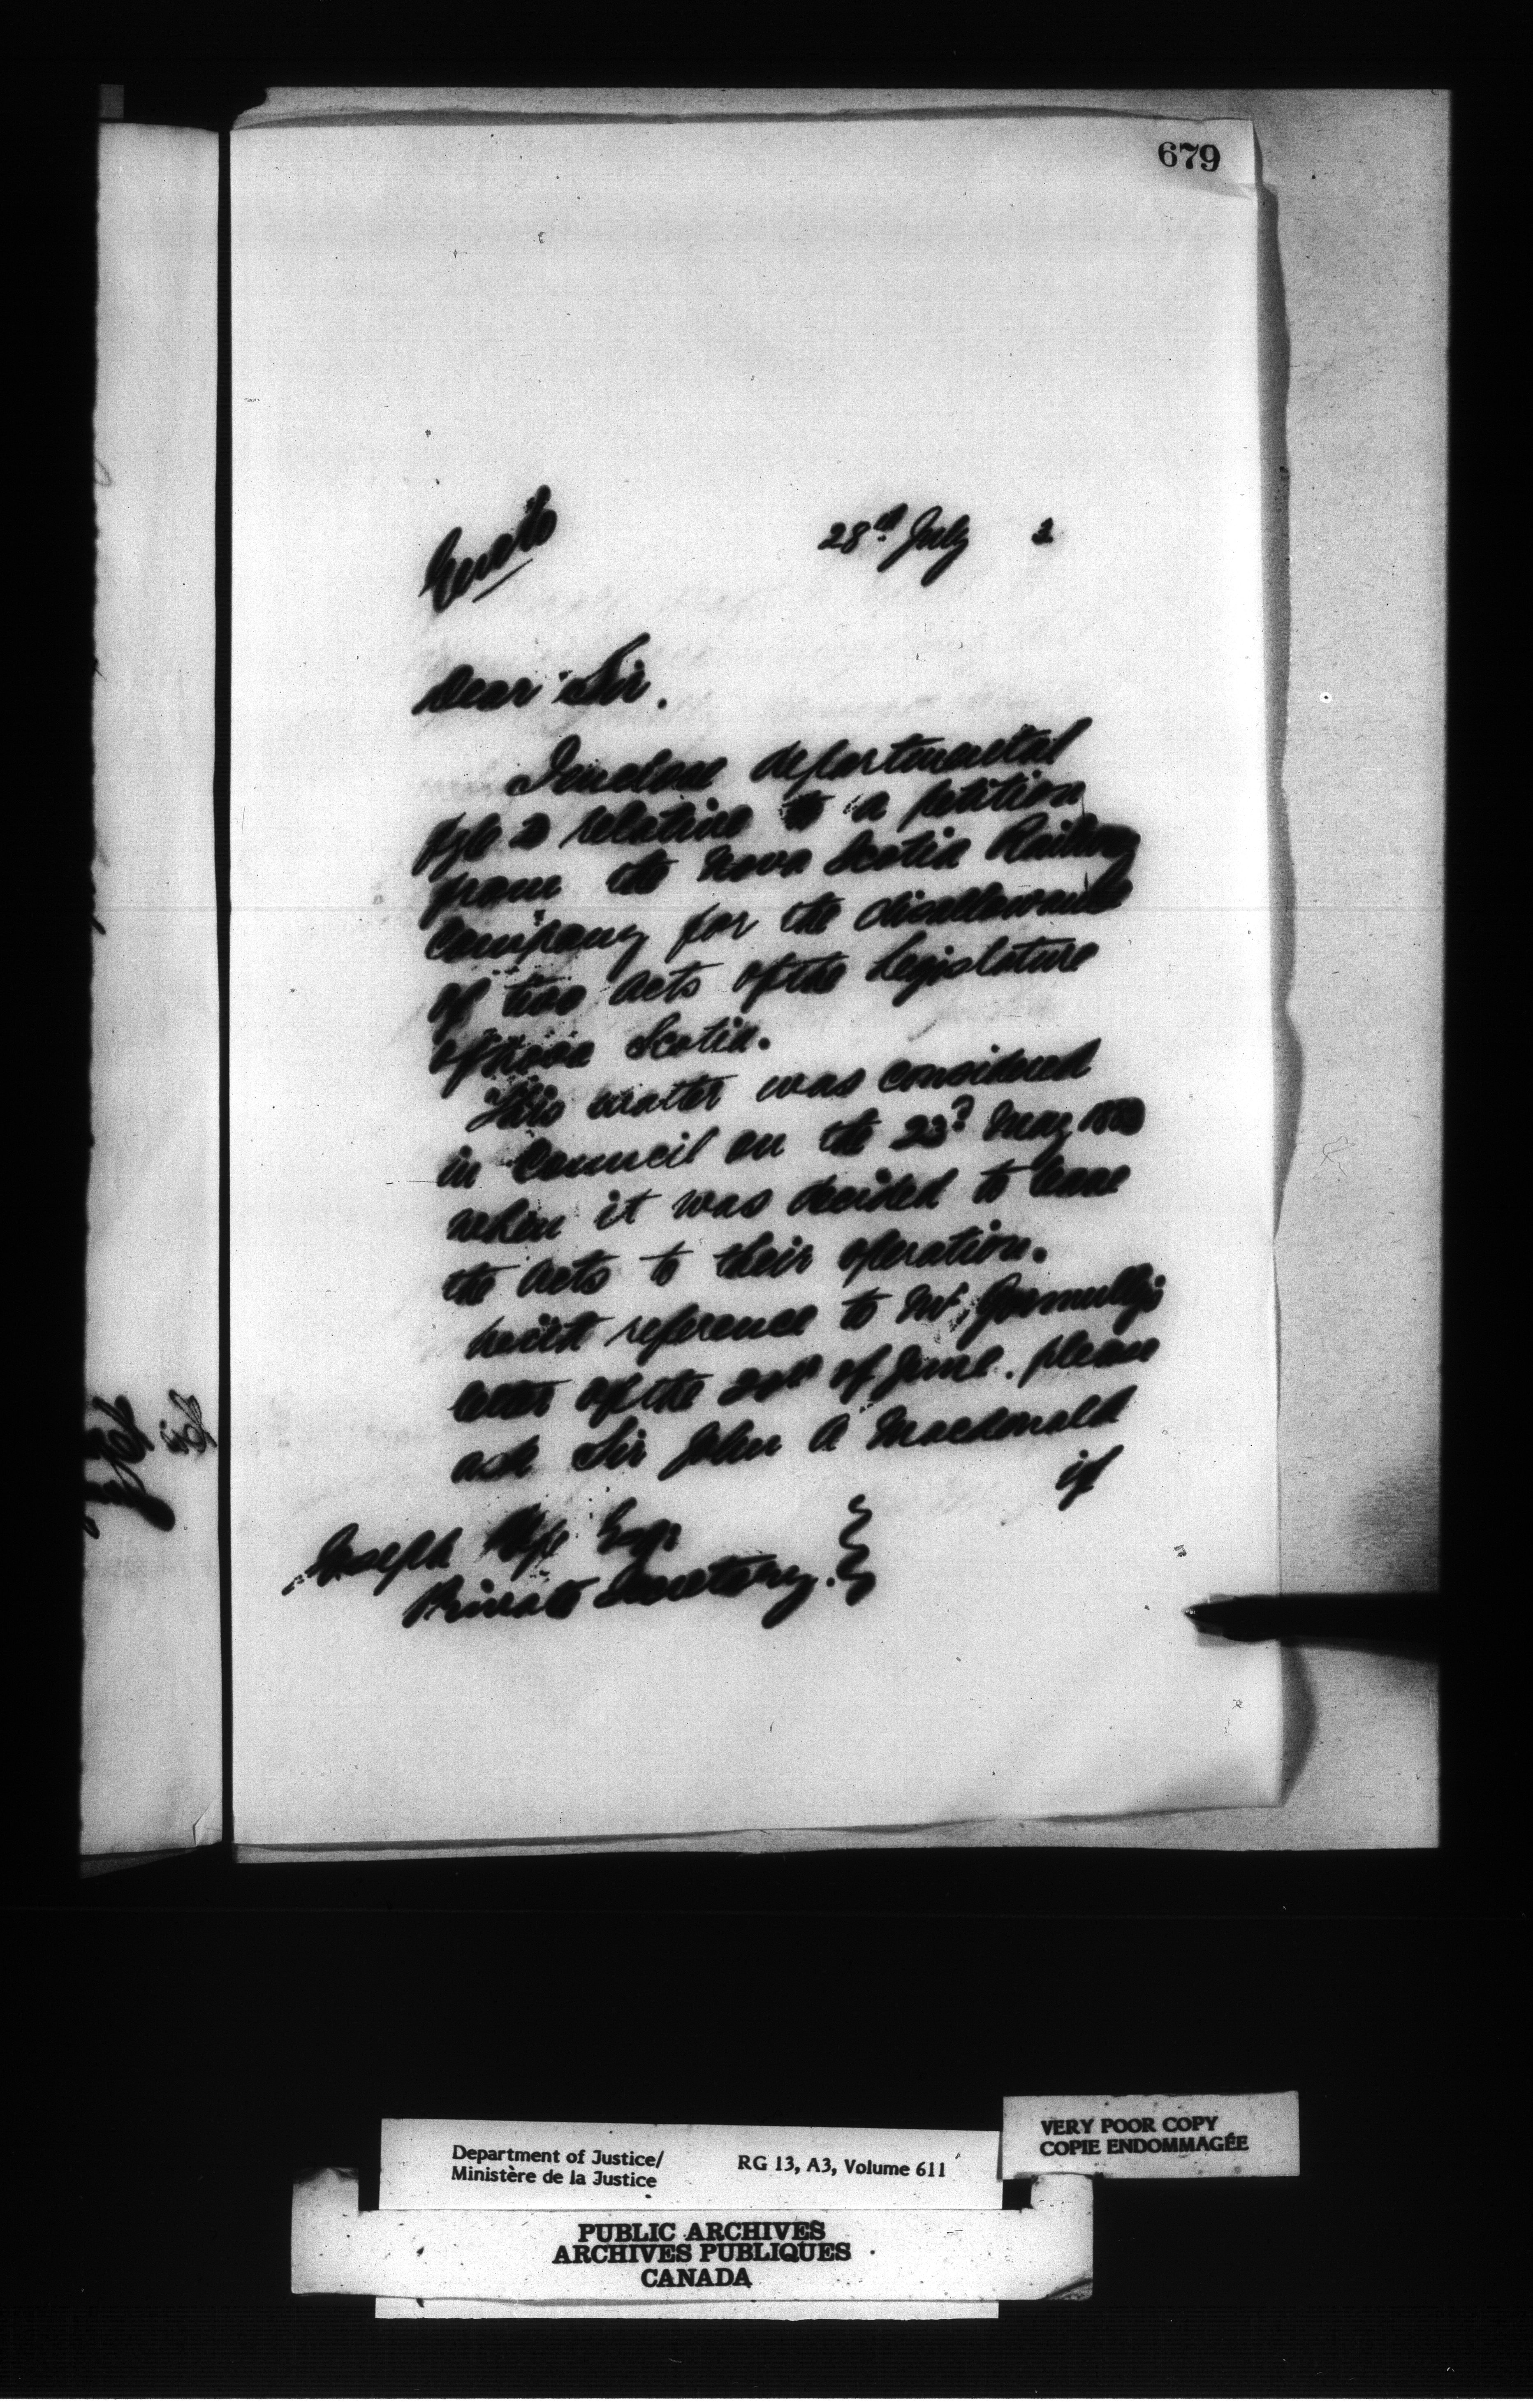 679
28th July 2
Dear Sir.
I enclose departmental
file relative to a petition
from the Nova Scotia Railway
Company for the disallowance
of two Acts of the Legislature
of Nova Scotia.
This matter was considered
in Council on the 23d May
when it was decided to leave
the Acts to their operation.
With reference to Mr. Gormully's
letter of the of June. please
ask Sir John A Macdonald
if
Joseph Pope Esq:
Private Secretary.
Department of Justice/
Ministère de la Justice
RG 13, A3, Volume 611
VERY POOR COPY
COPIE ENDOMMAGÉE
PUBLIC ARCHIVES
ARCHIVES PUBLIQUES
CANADA